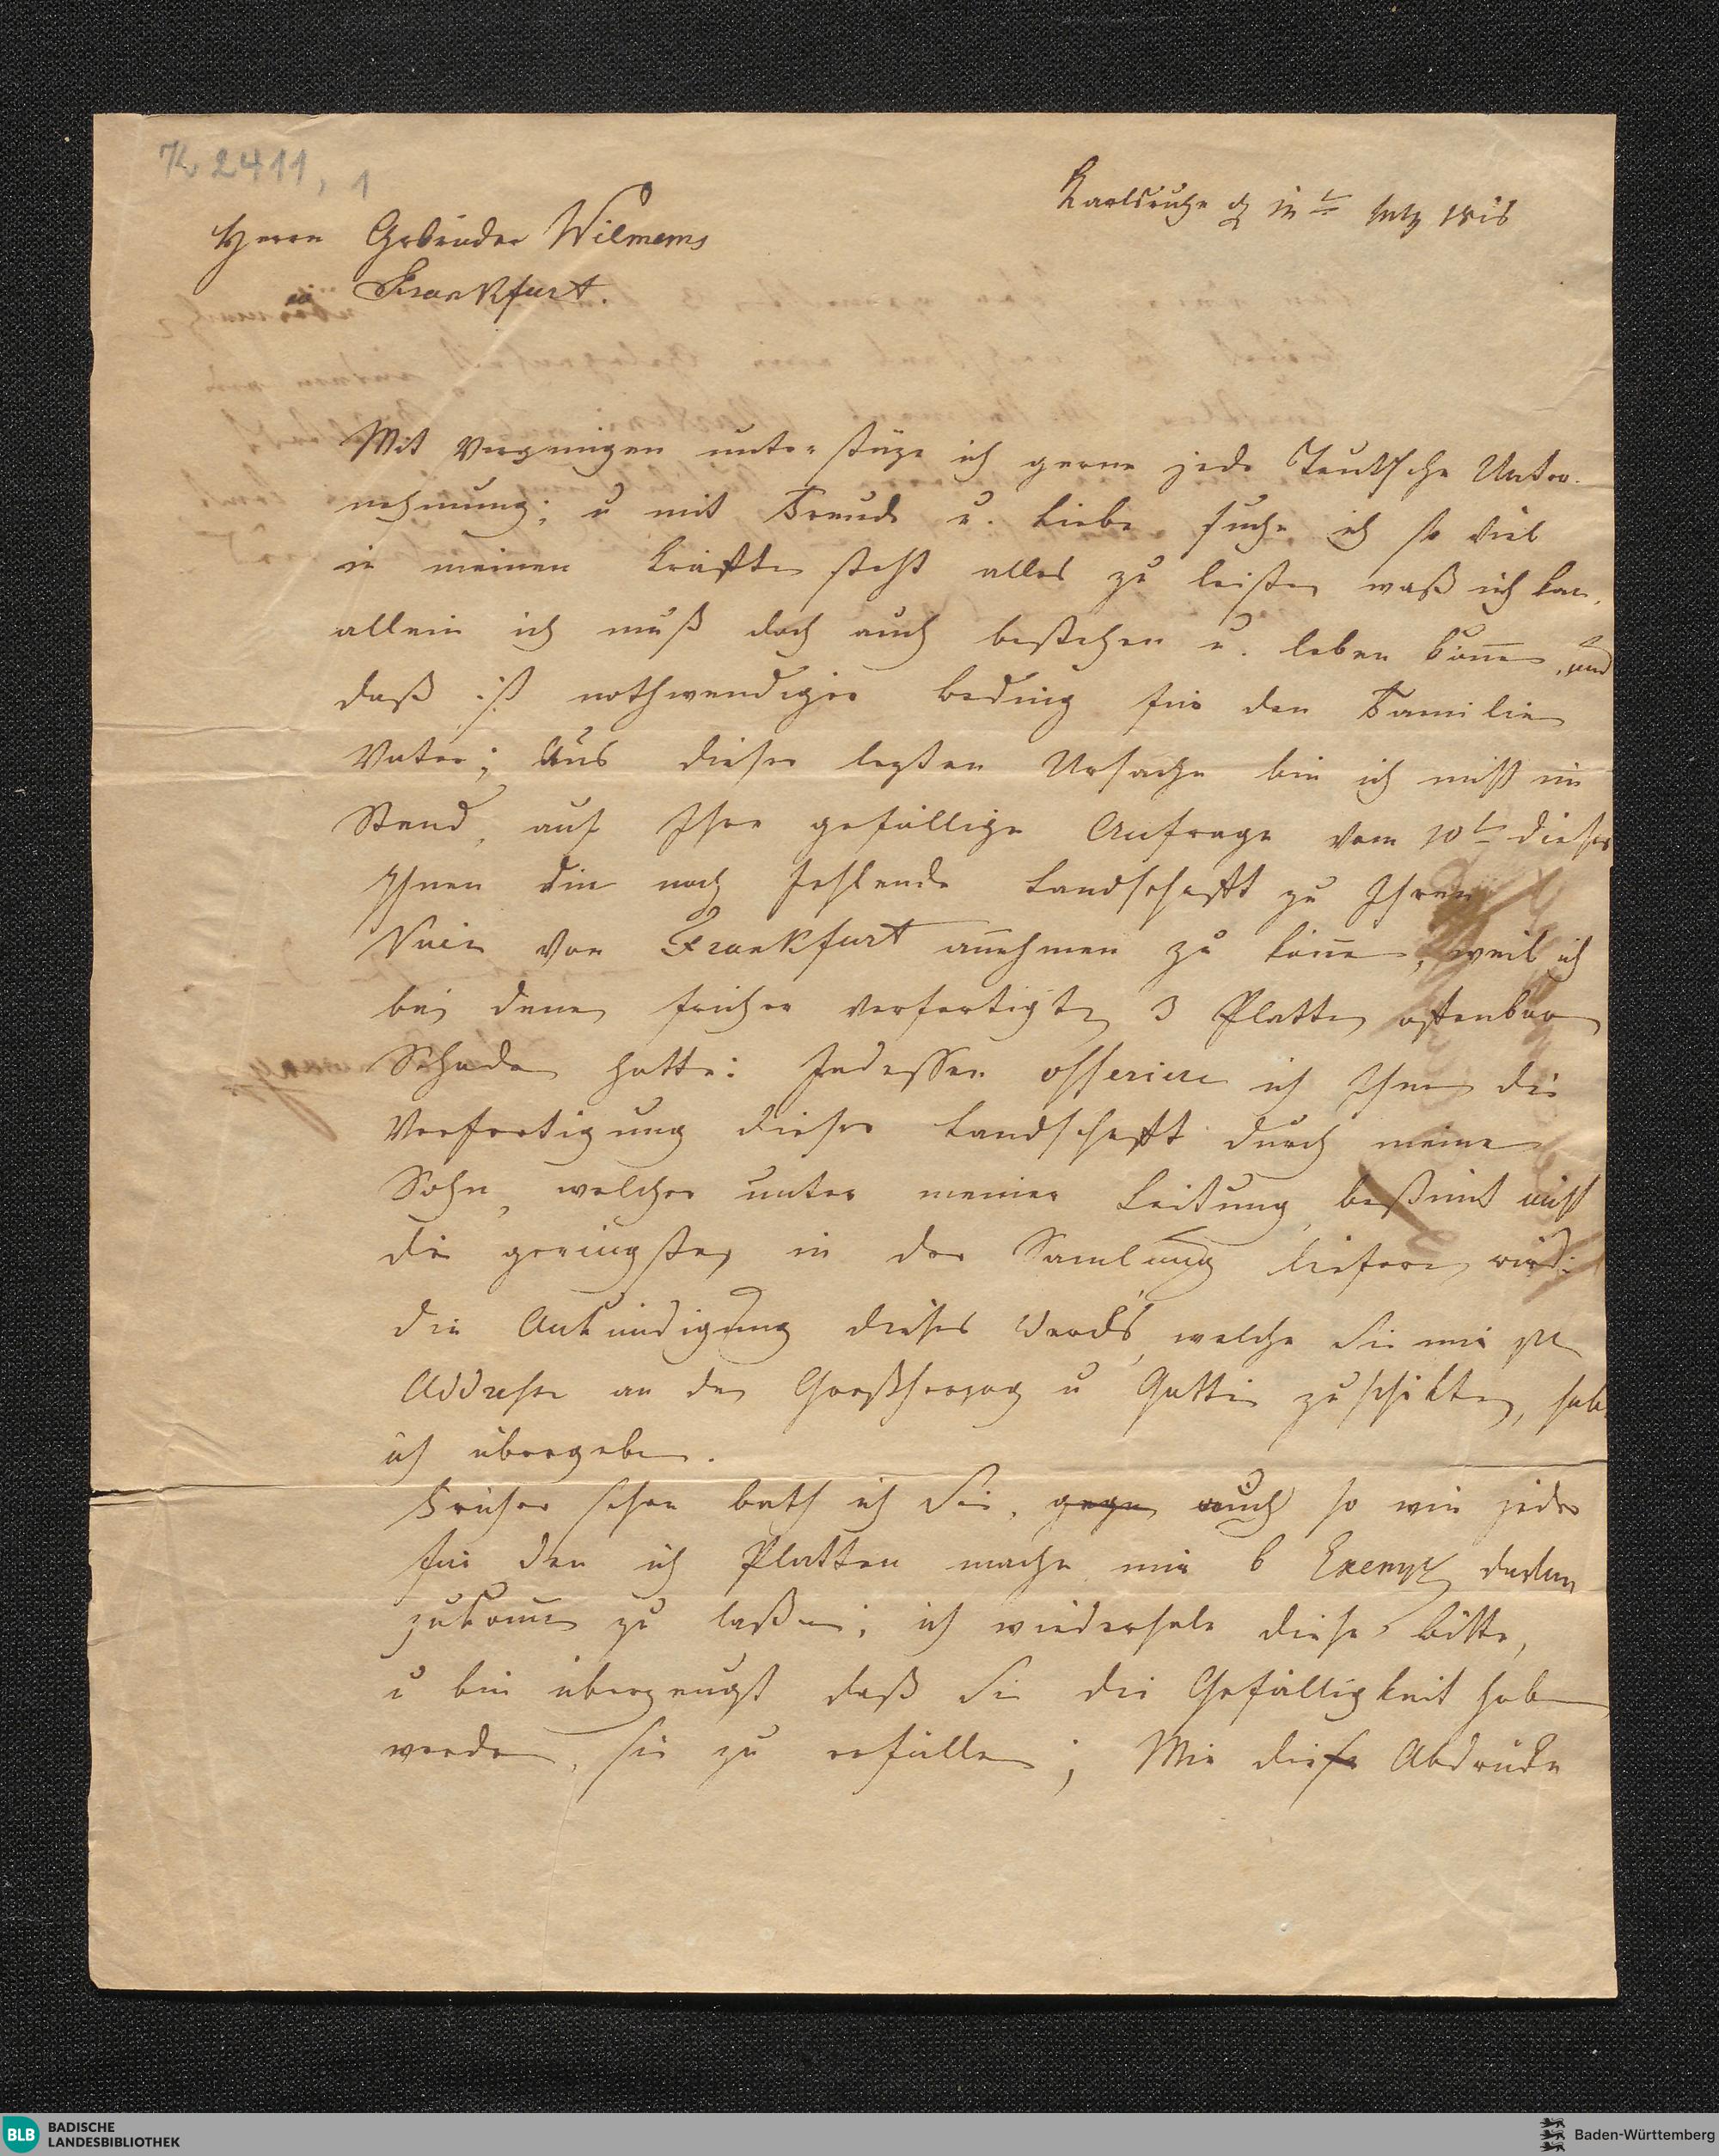 K 2411, 1
Karlsruhe d
Herrn Gebrüder Wilmems
Frankfurt.
Mit Vergnügen unterstüze ich gerne jede Teutsche Unter-
nehmung; u mit Freude u. Liebe suche ich so viel
in meinen Kräfften steht alles zu leisten waß ich kan,
allein ich muß doch auch bestehen u. leben könen, und
daß ist nothwendiger beding für den Familien
Vater; Aus dieser lezten Ursache bin ich nicht im
Stand, auf Ihre gefällige Anfrage vom 10t dieses
Ihnen die noch fehlende Landschafft zu Ihren
von Frankfurt annehmen zu könen, weil ich
bei denen früher verfertigten 3 Platten offenbar
Schaden hatte: Indessen offeriere ich Ihnen die
Verfertigung dieser Landschafft durch meinen
Sohn, welcher unter meiner Leitung, bestimt nicht
die geringsten in der Samlung liefern wird:
die Ankündigung dieses Werks, welche Sie mir
Addresse an den Großherzog u Gattin zuschikten, habe
ich übergeben.
Früher schon bath ich Sie, gegen auch so wie jeder
für den ich Platten mache mir 6 Exempl davon
zukomen zu laßen; ich wiederhole diese bitte,
u bin überzeugt daß Sie die Gefälligkeit haben
werden, sie zu erfüllen; Mir diese Abdrücke
BLB BADISCHE
LANDESBIBLIOTHEK
Baden-Württemberg